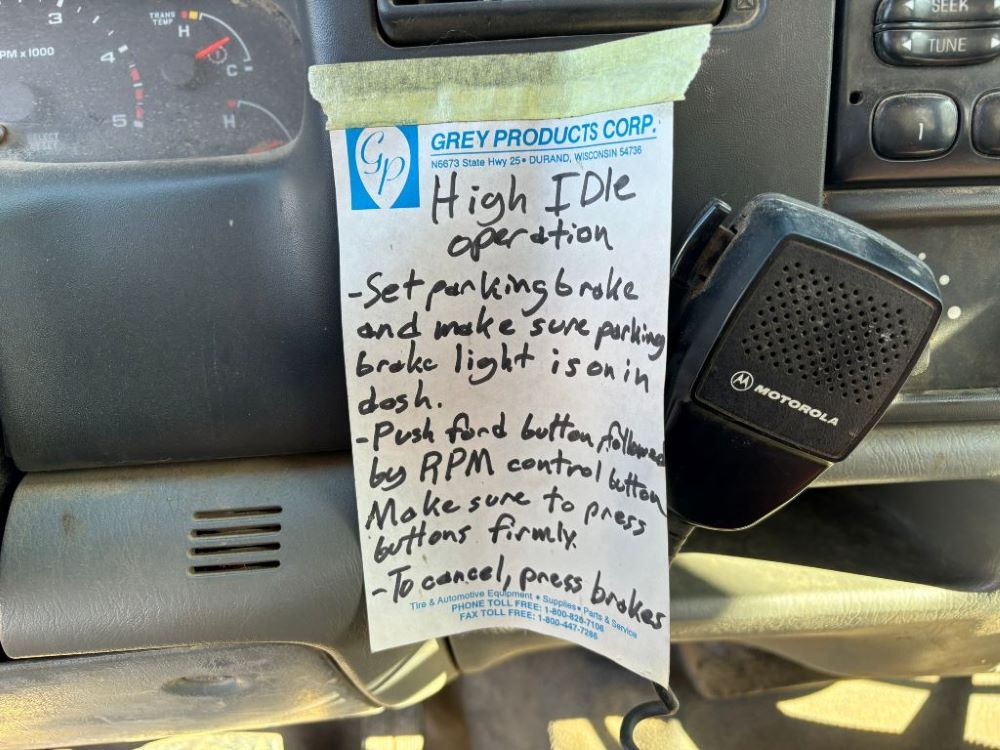 3
4
5
PM x 1000
TRANS
TEMP
H
C
H
SELECT
RESET
SEEK
TUNE
1
GP
GREY PRODUCTS CORP.
N6673 State Hwy 25 • DURAND, WISCONSIN 54736
High IDle
operation
-Set parking brake
and make sure parking
brake light is on in
dash.
-Push ford button, followed
by RPM control button
Make sure to press
buttons firmly.
-To cancel, press brakes
Tire & Automotive Equipment • Supplies • Parts & Service
PHONE TOLL FREE: 1-800-828-7106
FAX TOLL FREE: 1-800-447-7286
MOTOROLA